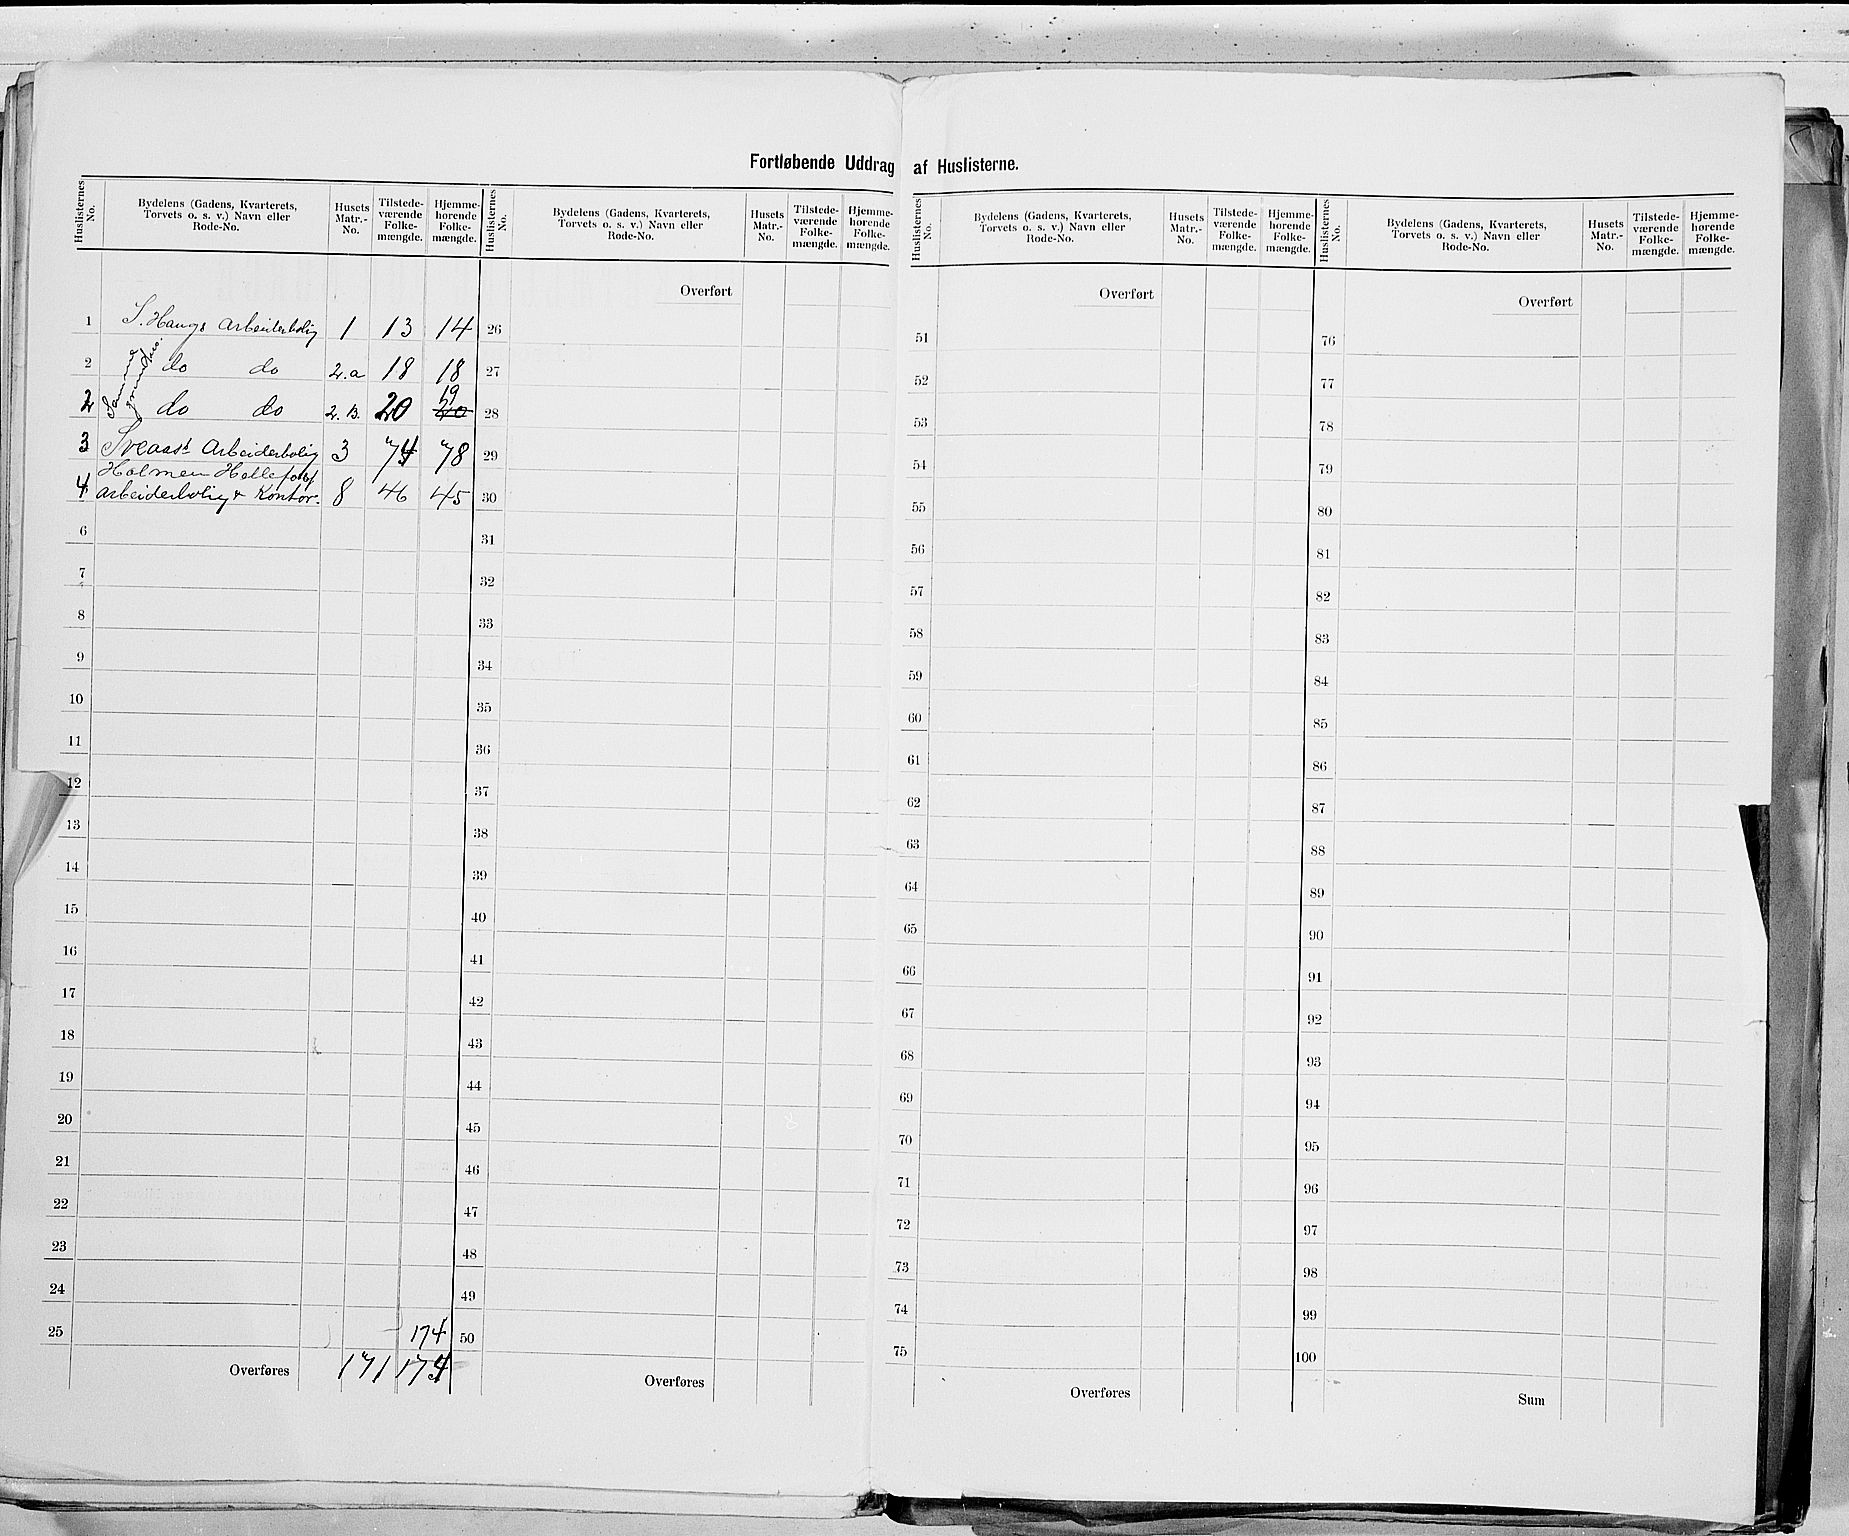 Fortløbende Uddrag af Huslisterne.
Huslisternes No. Bydelens (Gadens, Kvarterets, Torvets o. s. v.) Navn eller Rode-No. Husets Matr.-No. Tilstedeværende Folkemængde. Hjemmehørende Folkemængde.
1 S. Haugs Arbeiderbolig 1 13 14
2 do do 2.a 18 18
2 do do 2.B. 20 19
3 Sveaas's Arbeiderbolig 3 74 78
Holmen Hellefos
4 arbeiderbolig & Kontor. 8 46 45
6
7
8
9
10
11
12
13
14
15
16
17
18
19
20
21
22
23
24
25 174
Overføres 171 174
Huslisternes No. Bydelens (Gadens, Kvarterets, Torvets o. s. v.) Navn eller Rode-No. Husets Matr.-No. Tilstedeværende Folkemængde. Hjemmehørende Folkemængde.
Overført
26
27
28
29
30
31
32
33
34
35
36
37
38
39
40
41
42
43
44
45
46
47
48
49
50
Overføres
Huslisternes No. Bydelens (Gadens, Kvarterets, Torvets o. s. v.) Navn eller Rode-No. Husets Matr.-No. Tilstedeværende Folkemængde. Hjemmehørende Folkemængde.
Overført
51
52
53
54
55
56
57
58
59
60
61
62
63
64
65
66
67
68
69
70
71
72
73
74
75
Overføres
Huslisternes No. Bydelens (Gadens, Kvarterets, Torvets o. s. v.) Navn eller Rode-No. Husets Matr.-No. Tilstedeværende Folkemængde. Hjemmehørende Folkemængde.
Overført
76
77
78
79
80
81
82
83
84
85
86
87
88
89
90
91
92
93
94
95
96
97
98
99
100
Sum